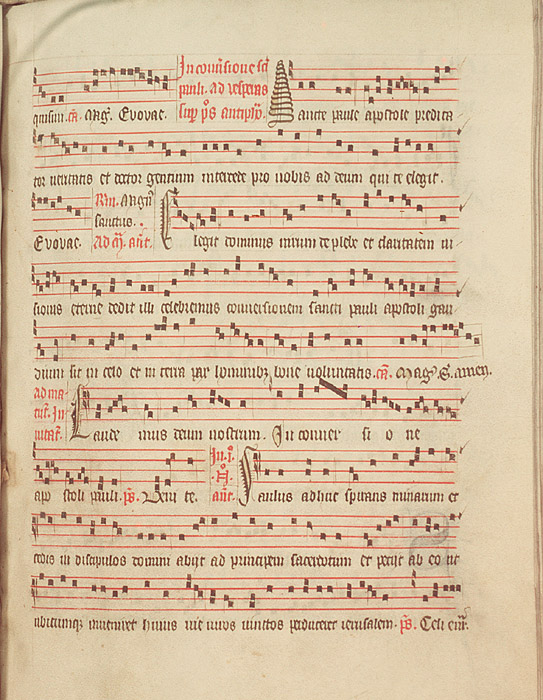 quisiui. ca. Mag. Evovae. In conuersione sci
pauli. ad vesperas
sup ps antipho. Sancte paule apostole predica
tor ueritatis et doctor gentium intercede pro nobis ad deum qui te elegit.
Evovae. Magn
sanctus.
Ad ant. Elegit dominus uirum de plebe et claritatem ui
sionis eterne dedit illi celebremus conuersionem sancti pauli apostoli gau
dium sit in celo et in terra pax hominibus bone uoluntatis. ca. Mag. S. amen.
ad ma
tut. In
uitat. Laude mus deum nostrum. In conuer si o ne
apo stoli pauli. ps. Veni te. In i.
N.
ant. Paulus adhuc spirans minarum et
cedis in discipulos domini abijt ad principem sacerdotum et petijt ab eo ut
ubicumque inueniret huius uie uiros uinctos perduceret ierusalem. ps. Celi enar.